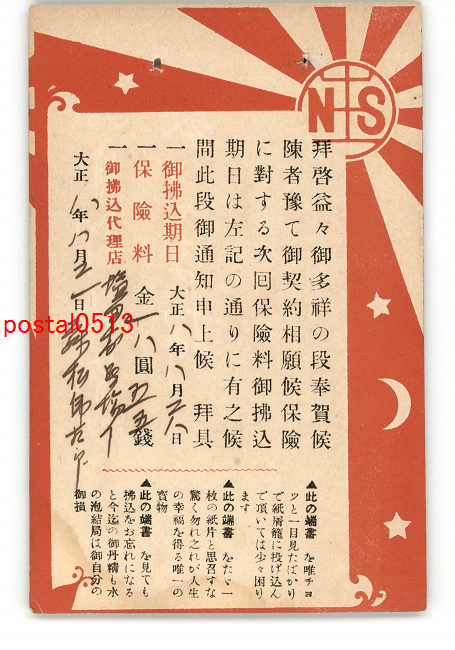 NS
拜啓益々御多祥の段奉賀候
陳者豫て御契約相願候保險
に對する次回保險料御拂込
期日は左記の通りに有之候
間此段御通知申上候 拜具
一御拂込期日 大正八年八月 日
一保險料 金一八圓五五錢
一御拂込代理店
大正八年八月 日
▲此の端書 を唯チョ
ッと一目見たばかり
で紙屑籠に投げ込ん
で頂いては少々困り
ます
▲此の端書 をたゞ一
枚の紙片と思召すな
驚く勿れ之れが人生
の幸福を得る唯一の
寳物
▲此の端書 を見ても
拂込をお忘れになる
と今迄の御丹精も水
の泡結局は御自分の
御損
postal0513